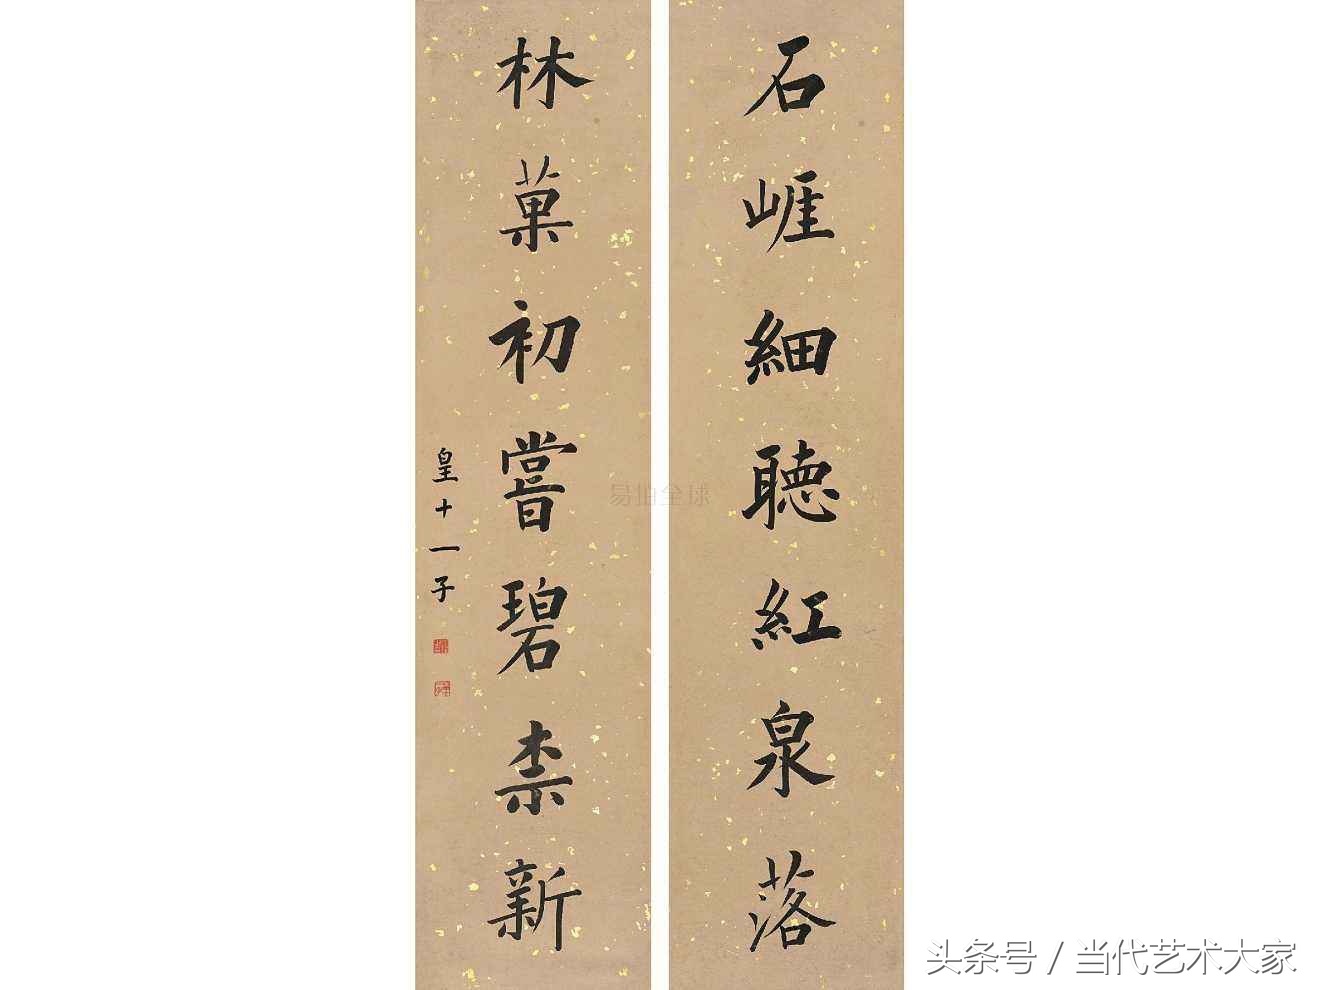 石崕細聽紅泉落
林菓初嘗碧柰新
皇十一子
易怕全球
头条号 / 当代艺术大家